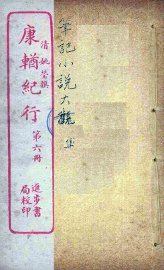 筆記小說大觀
清姚瑩撰
康輶紀行
第六冊
進步書
局校印